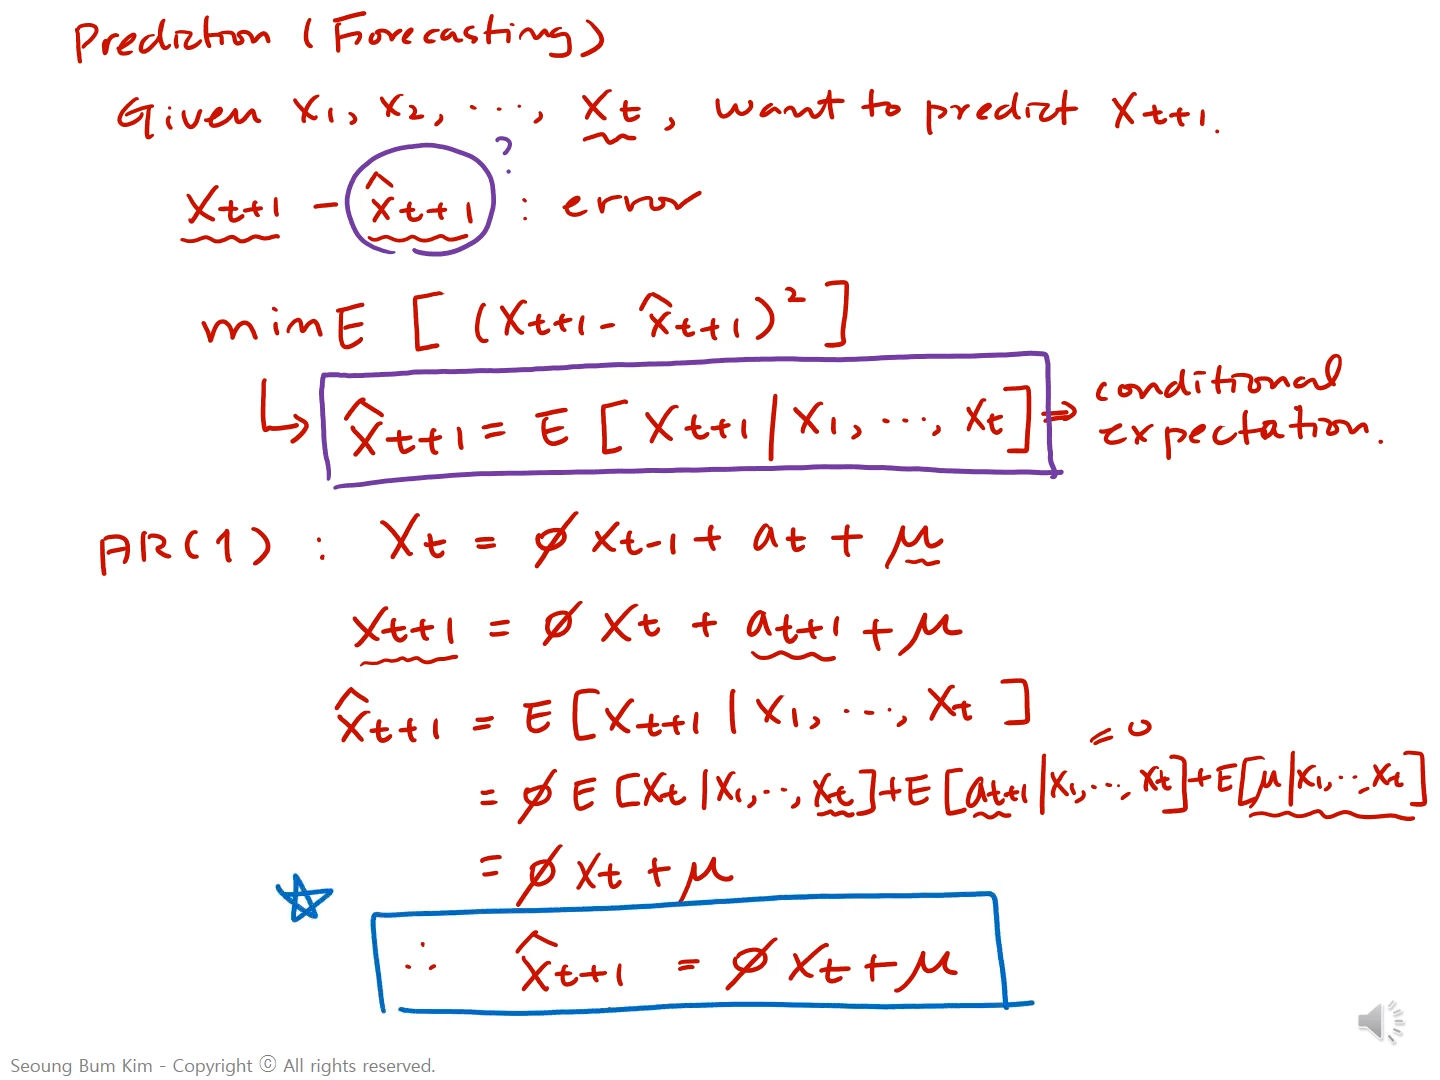 Prediction (Forecasting)
Given X₁, X₂, ..., Xt, want to predict Xt+1.
?
Xt+1 - X̂t+1 : error
min E [(Xt+1 - X̂t+1)²]
↳ X̂t+1 = E [Xt+1 | X₁, ..., Xt] ⇒ conditional expectation.
AR(1) : Xt = ø Xt-1 + at + μ
Xt+1 = ø Xt + at+1 + μ
X̂t+1 = E [Xt+1 | X₁, ..., Xt]
= 0
= ø E [Xt | X₁, ..., Xt] + E [at+1 | X₁, ..., Xt] + E [μ | X₁, ..., Xt]
= ø Xt + μ
☆
∴ X̂t+1 = ø Xt + μ
Seoung Bum Kim - Copyright ⓒ All rights reserved.